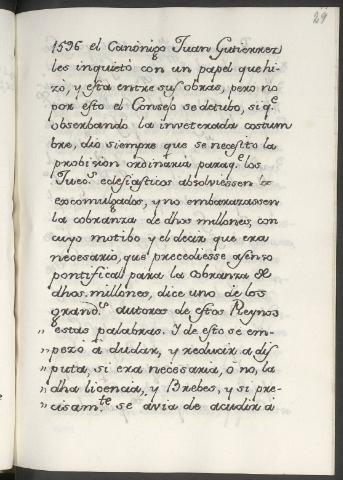 29
1596 el Canónigo Juan Gutierrez
les inquietó con un papel que hi-
zo, y esta entre sus obras, pero no
por esto el Consejo se detubo, si q.e
obserbando la inveterada costum
bre, dio siempre que se necesito la
probision ordinaria paraq.e los
Juec.s eclesiasticos absolviessen los
excomulgados, y no embarazassen
la cobranza de dhos millones, con
cuyo motibo y el decir que era
necesario, que precediesse asenso
pontifical para la cobranza de
dhos. millones, dice uno de los
grand.s autores de estos Reynos
"estas palabras. Y de esto se em-
"pezó à dudar, y reducir a dis
"puta, si era necesaria, ò no, la
"dha licencia, y Brebes, y si pre-
"cisam.te se avia de acudir à